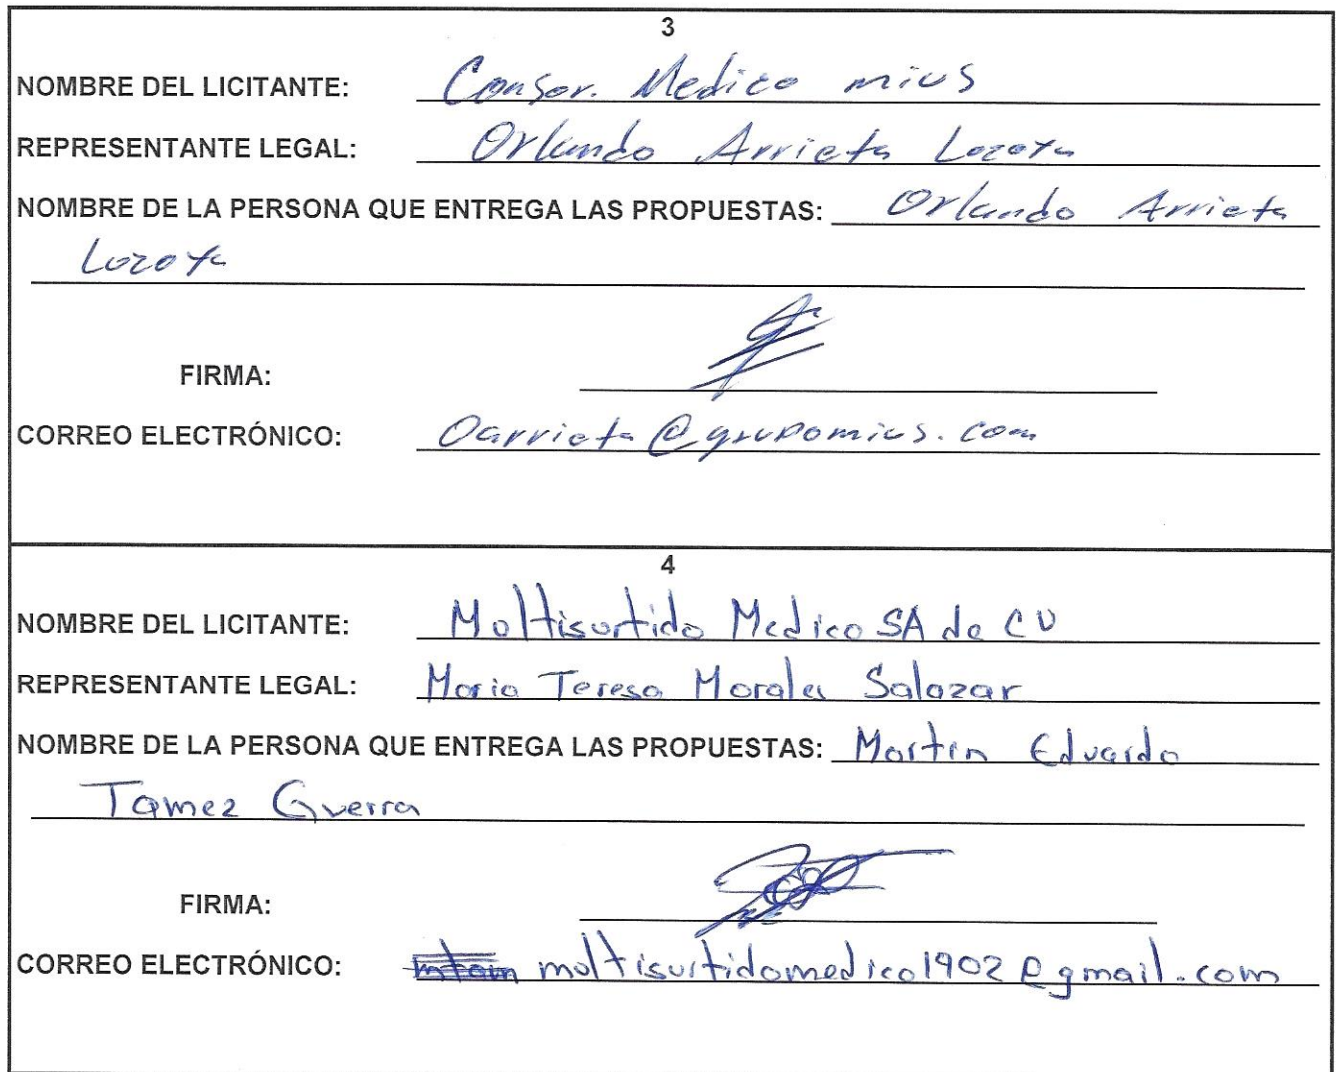 3
NOMBRE DEL LICITANTE: Consor. Medico mius
REPRESENTANTE LEGAL: Orlando Arrieta Lozoya
NOMBRE DE LA PERSONA QUE ENTREGA LAS PROPUESTAS: Orlando Arrieta
Lozoya
FIRMA:
CORREO ELECTRÓNICO: Oarrieta@grupomius.com
4
NOMBRE DEL LICITANTE: Multisurtido Medico SA de CV
REPRESENTANTE LEGAL: Maria Teresa Morales Salazar
NOMBRE DE LA PERSONA QUE ENTREGA LAS PROPUESTAS: Martin Eduardo
Tamez Guerra
FIRMA:
CORREO ELECTRÓNICO: multisurtidomedico1902@gmail.com